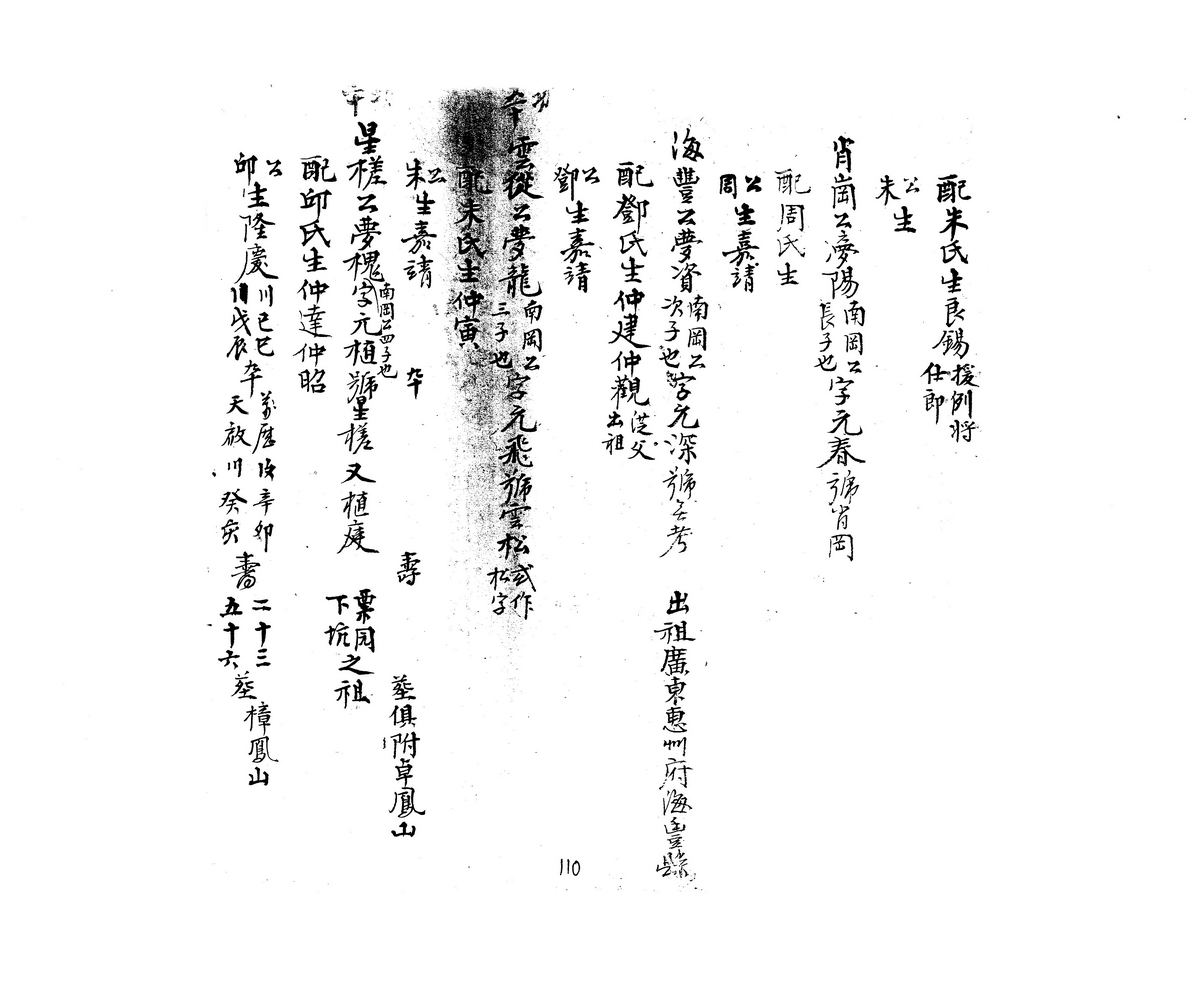 配朱氏生良錫援例將仕郎
公朱生
肖崗公夢陽南岡公長子也字元春號肖岡
配周氏生
公周生嘉靖
海豐公夢資南岡公次子也字元深號考
出祖廣東惠州府海豐縣
配鄧氏生仲建仲觀從父出祖
公鄧生嘉靖
雲從公夢龍南岡公三子也字元飛號雲松或作松字
配朱氏生仲寅
公朱生嘉靖 卒 壽 葬俱附卓鳳山
星槎公夢槐南岡公四子也字元植號星槎又植庭
栗園下坑之祖
配邱氏生仲達仲昭
公邱生隆慶己巳戊辰卒萬曆辛卯天啟癸亥壽二十三五十六葬樟鳳山
110